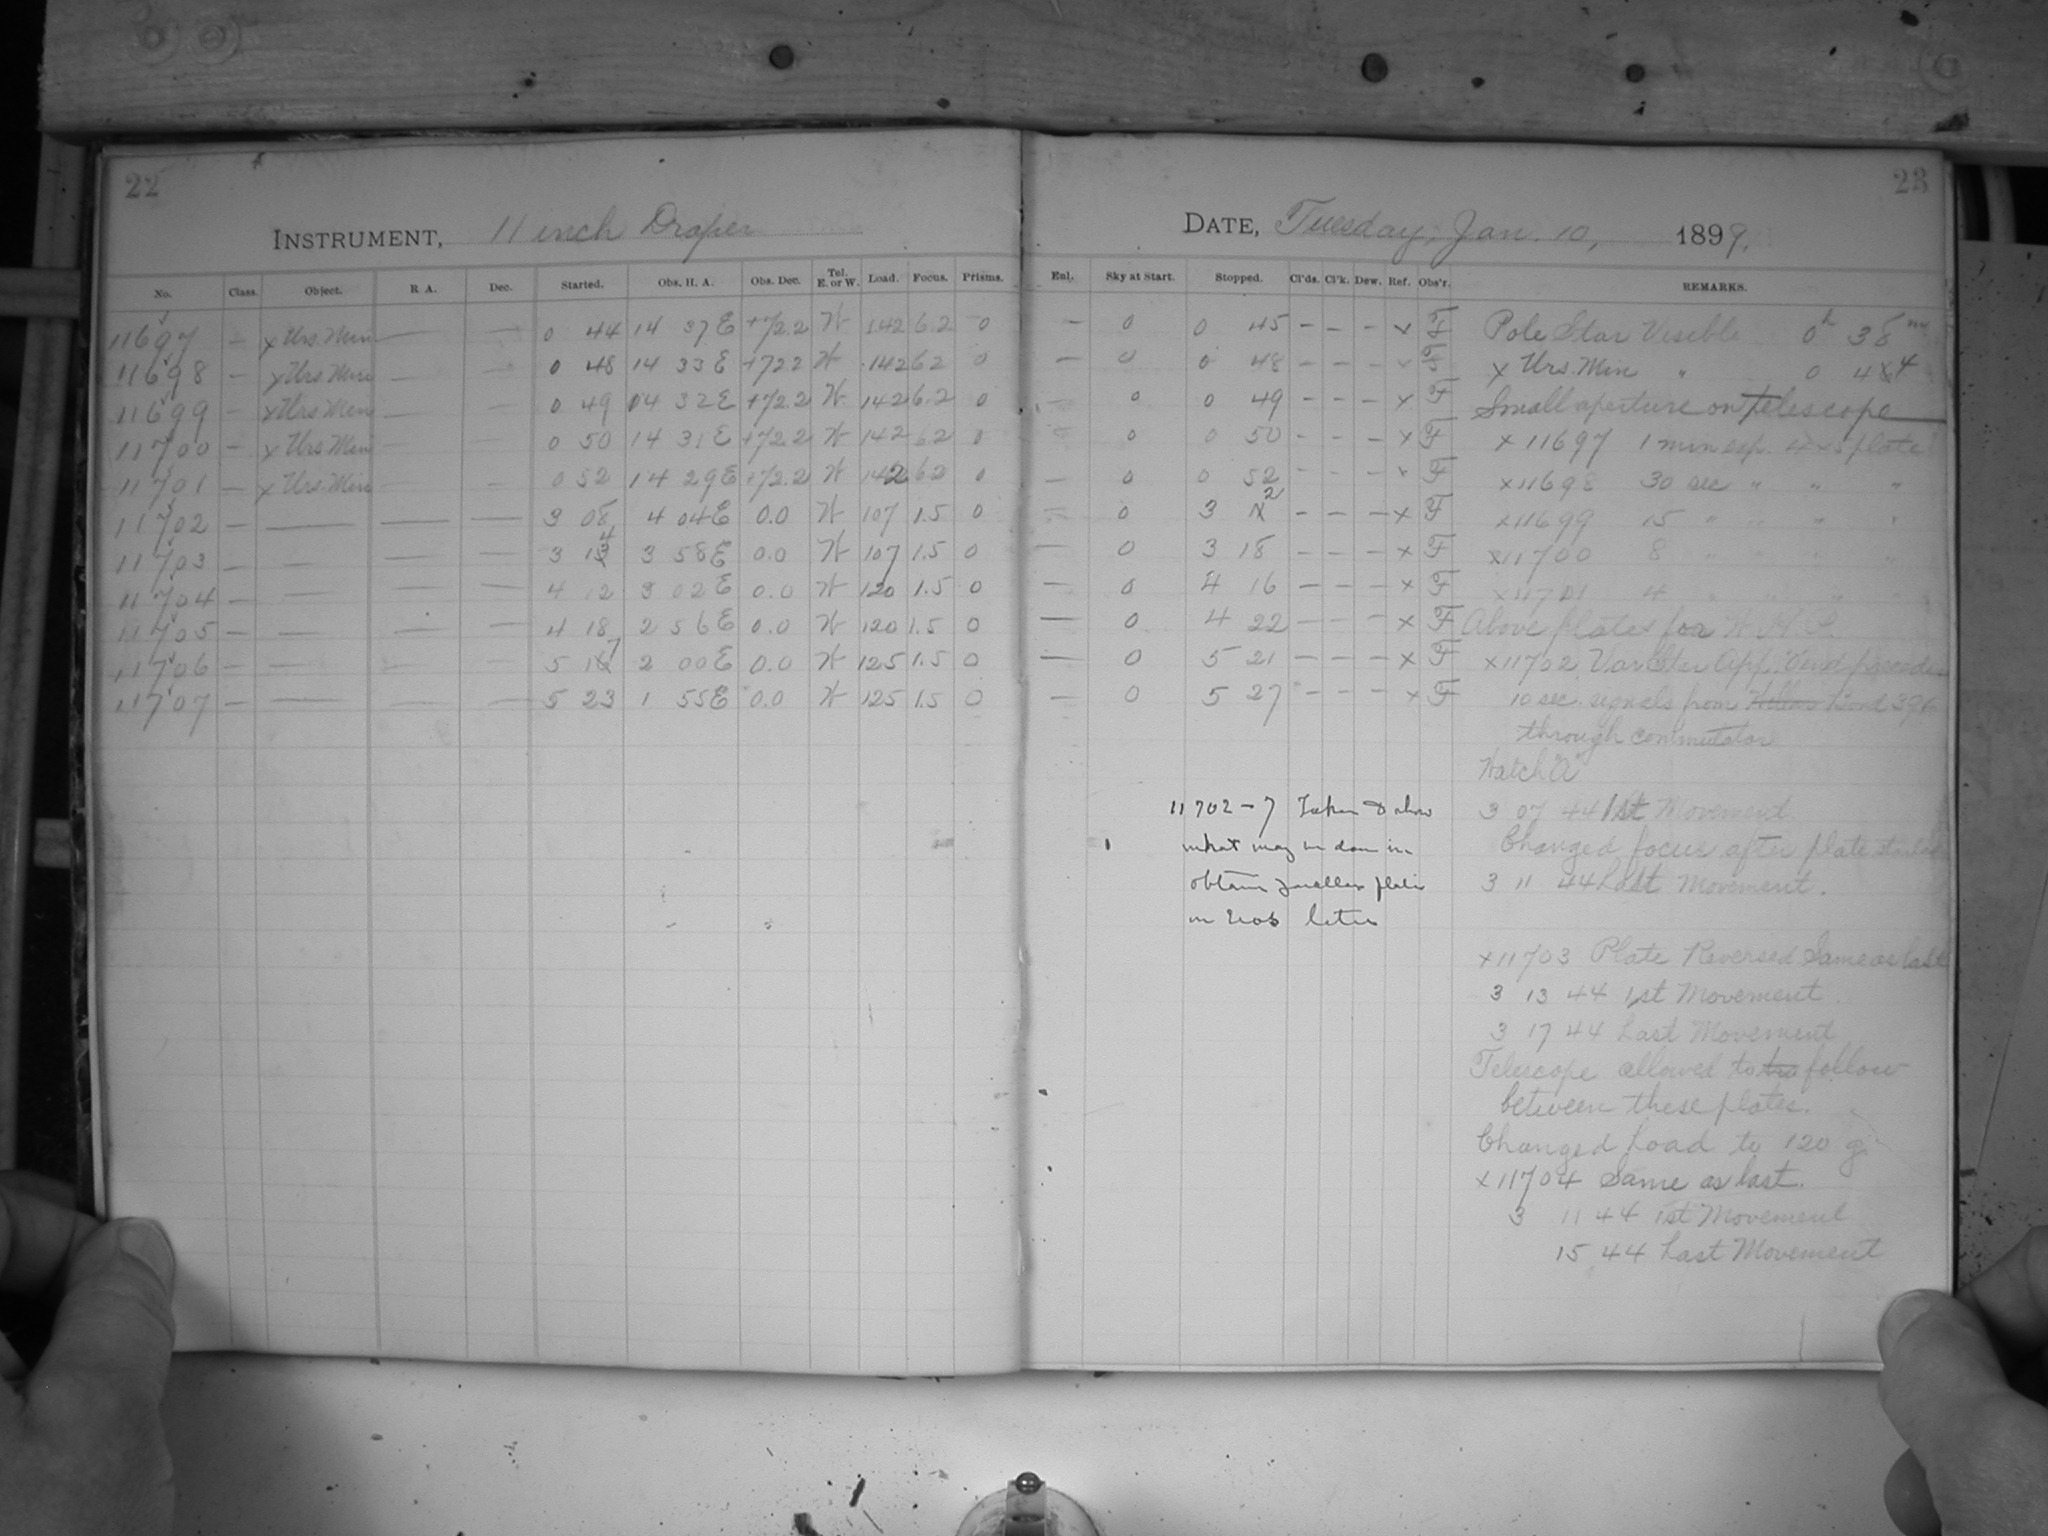 22
INSTRUMENT, 11 inch Draper
No. Class. Object. R A. Dec. Started. Obs. H. A. Obs. Dec. Tel. E. or W. Load. Focus. Prisms.
11697 — x Urs. Min — — 0 44 14 37 E +72.2 W 142 6.2 0
11698 — x Urs. Min — — 0 48 14 33 E +72.2 W 142 6.2 0
11699 — x Urs. Min — — 0 49 14 32 E +72.2 W. 142 6.2 0
11700 — x Urs. Min — — 0 50 14 31 E +72.2 W 142 6.2 0
11701 — x Urs. Min — — 0 52 14 29 E +72.2 W 142 6.2 0
11702 — — — — 3 08 4 04 E 0.0 W 107 1.5 0
11703 — — — — 3 14 3 58 E 0.0 W 107 1.5 0
11704 — — — — 4 12 3 02 E 0.0 W 120 1.5 0
11705 — — — — 4 18 2 56 E 0.0 W 120 1.5 0
11706 — — — — 5 17 2 00 E 0.0 W 125 1.5 0
11707 — — — — 5 23 1 55 E 0.0 W 125 1.5 0
23
DATE, Tuesday, Jan. 10, 1899.
Enl. Sky at Start. Stopped. Cl'ds. Cl'k. Dew. Ref. Obs'r. REMARKS.
— 0 0 45 — — — x F Pole Star Visible 0h 38m
— 0 0 48 — — — x F x Urs. Min " 0 44
— 0 0 49 — — — x F Small aperture on telescope
— 0 0 50 — — — x F x 11697 1 min exp. 4x5 plate
— 0 0 52 — — — x F x 11698 30 sec " " "
— 0 3 12 — — — x F x 11699 15 " " " "
— 0 3 18 — — — x F x 11700 8 " " " "
— 0 4 16 — — — x F x 11701 4 " " " "
— 0 4 22 — — — x F Above plates for W. H. P.
— 0 5 21 — — — x F x 11702 Var Star App.
— 0 5 27 — — — x F 10 sec. signals from Bond 394
through commutator
Watch "A"
3 07 44 1st Movement
Changed focus after plate started
3 11 44 Last Movement.
11702-7 Taken to show
what may be done in
obtain smaller plates
x 11703 Plate Reversed Same as last
3 13 44 1st Movement
3 17 44 Last Movement
Telescope allowed to follow
between these plates.
Changed Load to 120 g
x 11704 Same as last.
3 11 44 1st Movement
15 44 Last Movement